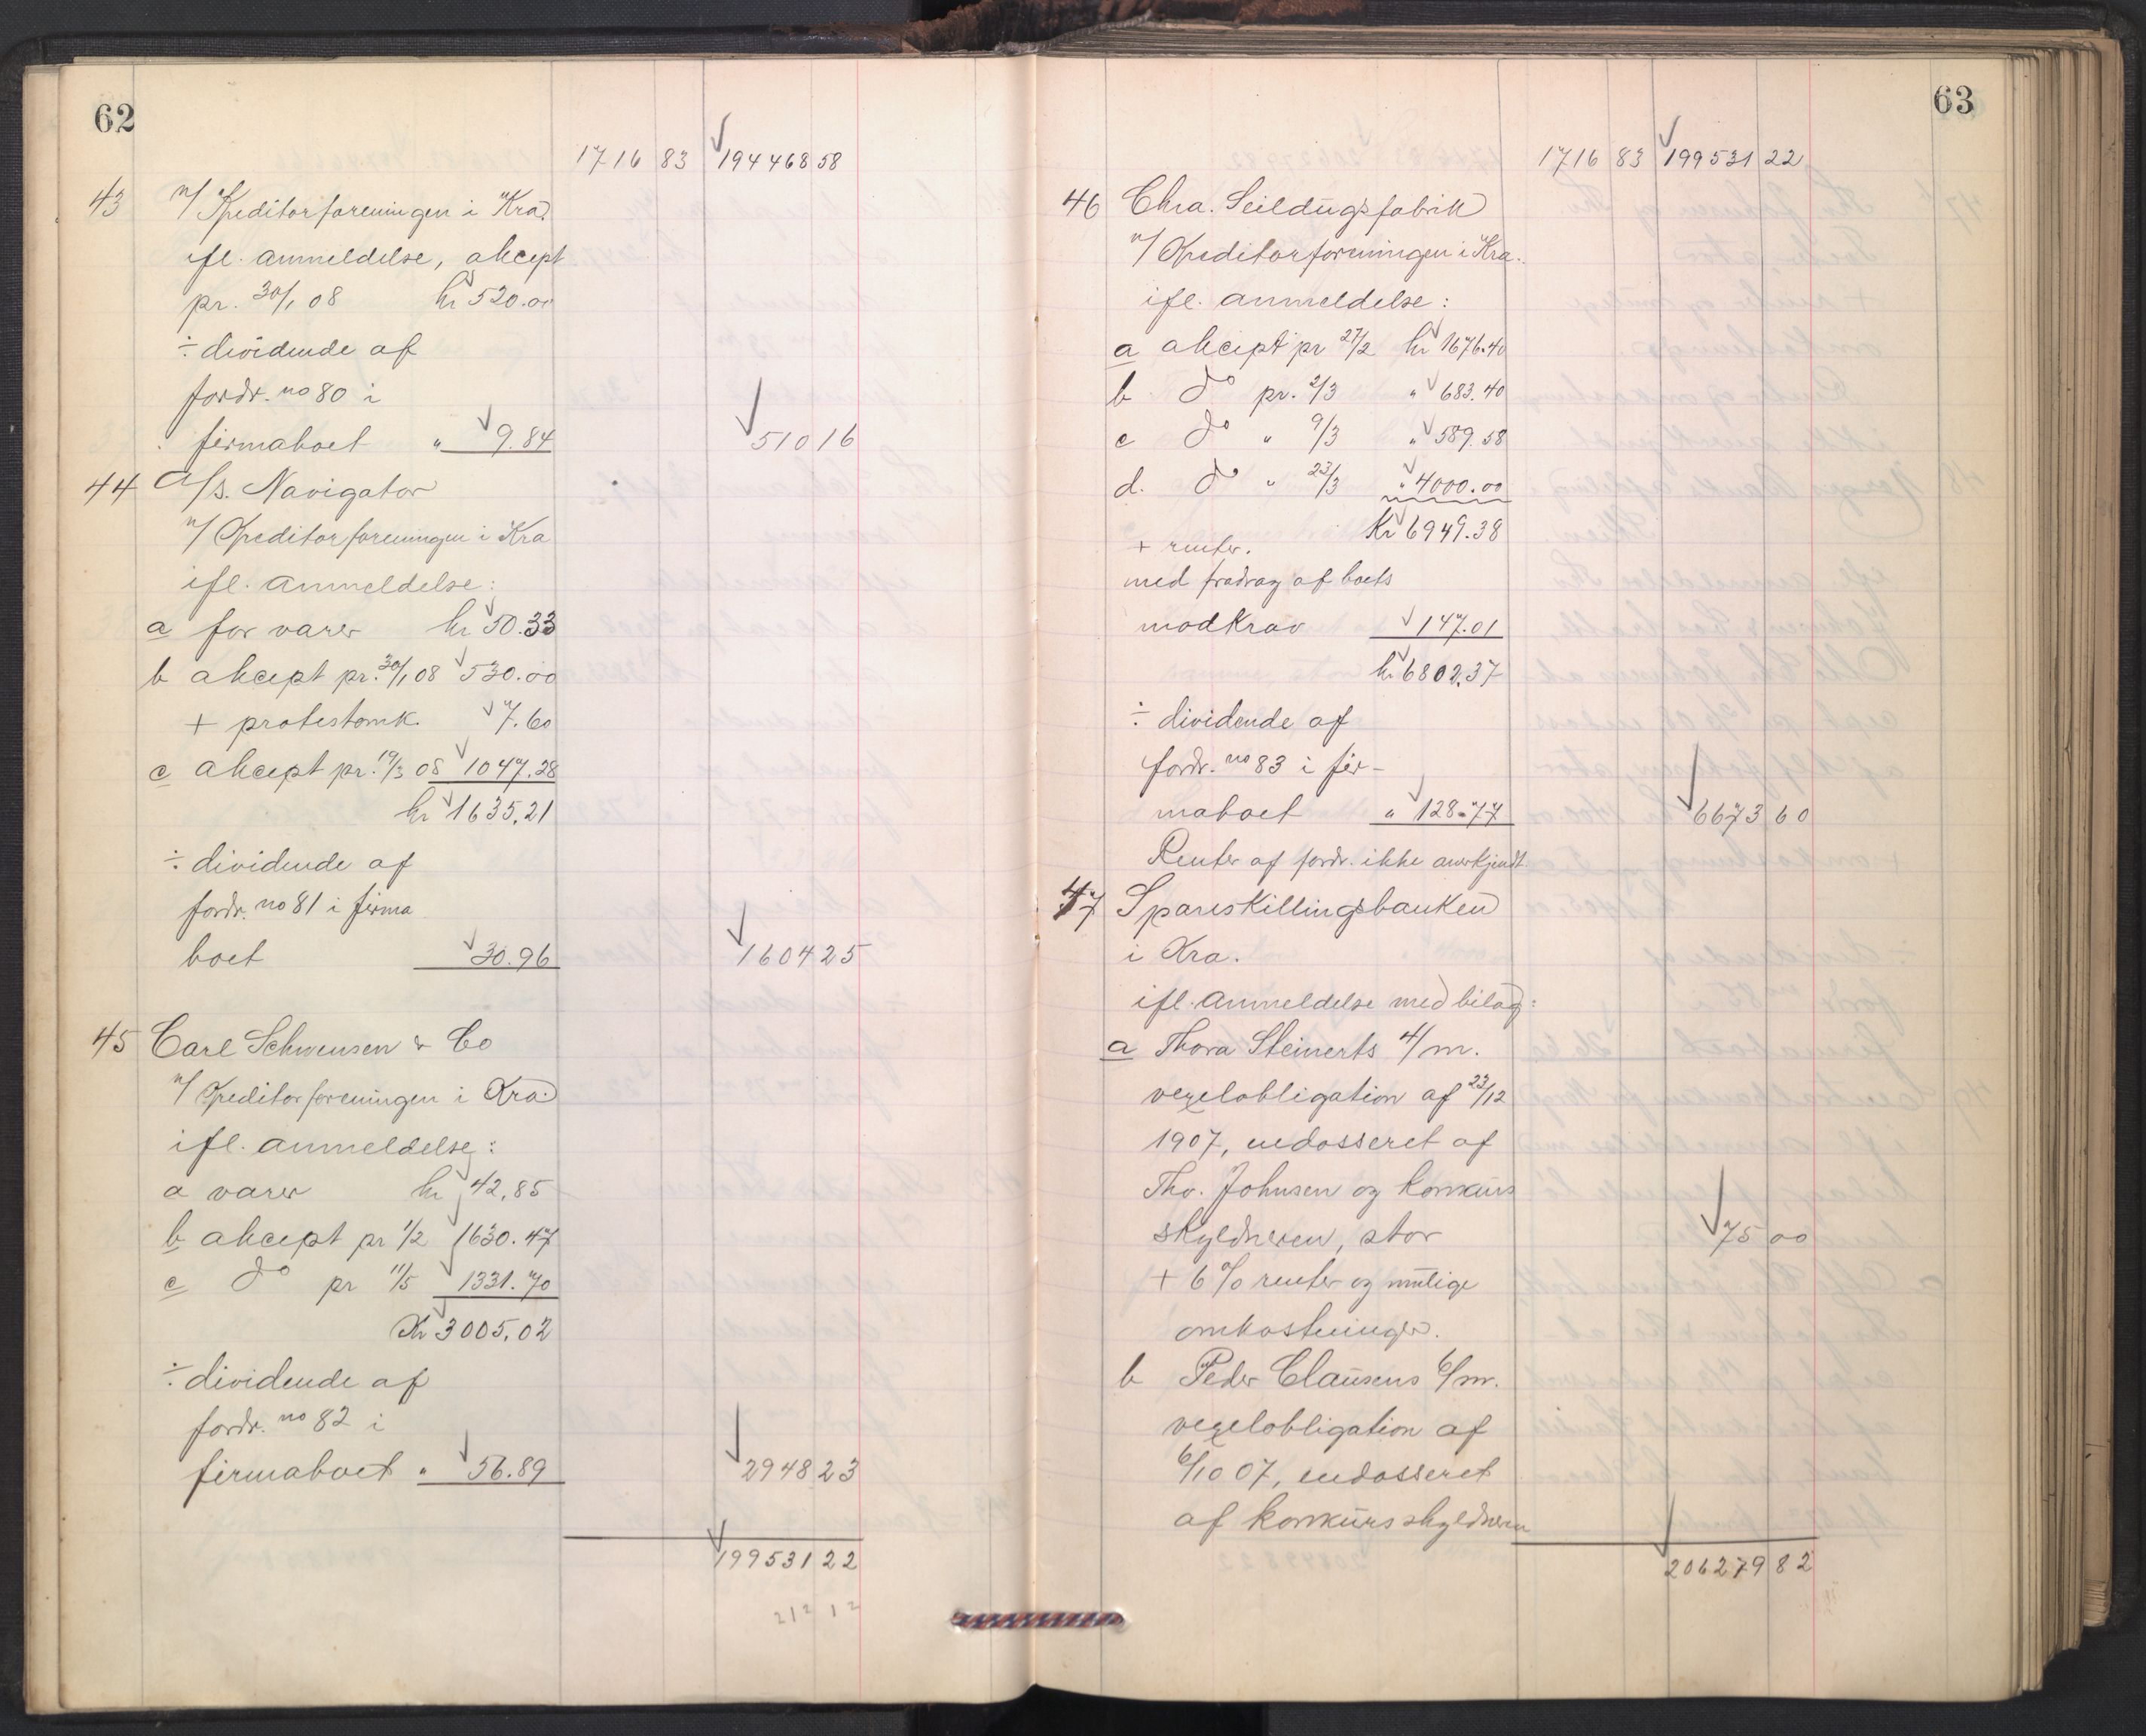 62
1716 83 194468 58
43 v/ Kreditorforeningen i Kra.
ifl. anmeldelse, akcept
pr. 30/1 08 kr 520.00
÷ dividende af
fordr. no 80 i
firmaboet " 9.84 510 16
44 A/s. Navigator
v/ Kreditorforeningen i Kra
ifl. anmeldelse:
a for varer kr 50.33
b akcept pr. 30/1 08 530.00
+ protestomk. 7.60
c akcept pr. 19/3 08 1047.28
kr 1635.21
÷ dividende af
fordr. no 81 i firma
boet 30.96 1604 25
45 Carl Schwensen & Co
v/ Kreditorforeningen i Kra.
ifl. anmeldelse:
a varer kr 42,85
b akcept pr 1/2 1630.47
c do pr 11/5 1331.70
Kr 3005,02
÷ dividende af
fordr. no 82 i
firmaboet " 56.89 2948 23
199531 22
212 12
63
1716 83 199531 22
46 Chra. Seildugsfabrik
v/ Kreditorforeningen i Kra.
ifl. anmeldelse:
a akcept pr 27/2 kr 1676.40
b do pr. 2/3 " 683.40
c do " 9/3 " 589.58
d. do " 23/3 " 4000.00
Kr 6949.38
+ renter.
med fradrag af boets
modkrav 147.01
kr 6802,37
÷ dividende af
fordr. no 83 i fir-
maboet " 128.77 6673 60
Renter af fordr. ikke anerkjendt
47 Spareskillingsbanken
i Kra.
ifl. anmeldelse med bilag:
a Thora Steinerts 4/m.
vexelobligation af 23/12
1907, endosseret af
Thv. Johnsen og konkurs
skyldneren, stor 75 00
+ 6 % renter og mulige
omkostninger.
b Peder Clausens 6/m.
vexelobligation af
6/10 07, endosseret
af konkursskyldneren
206279 82